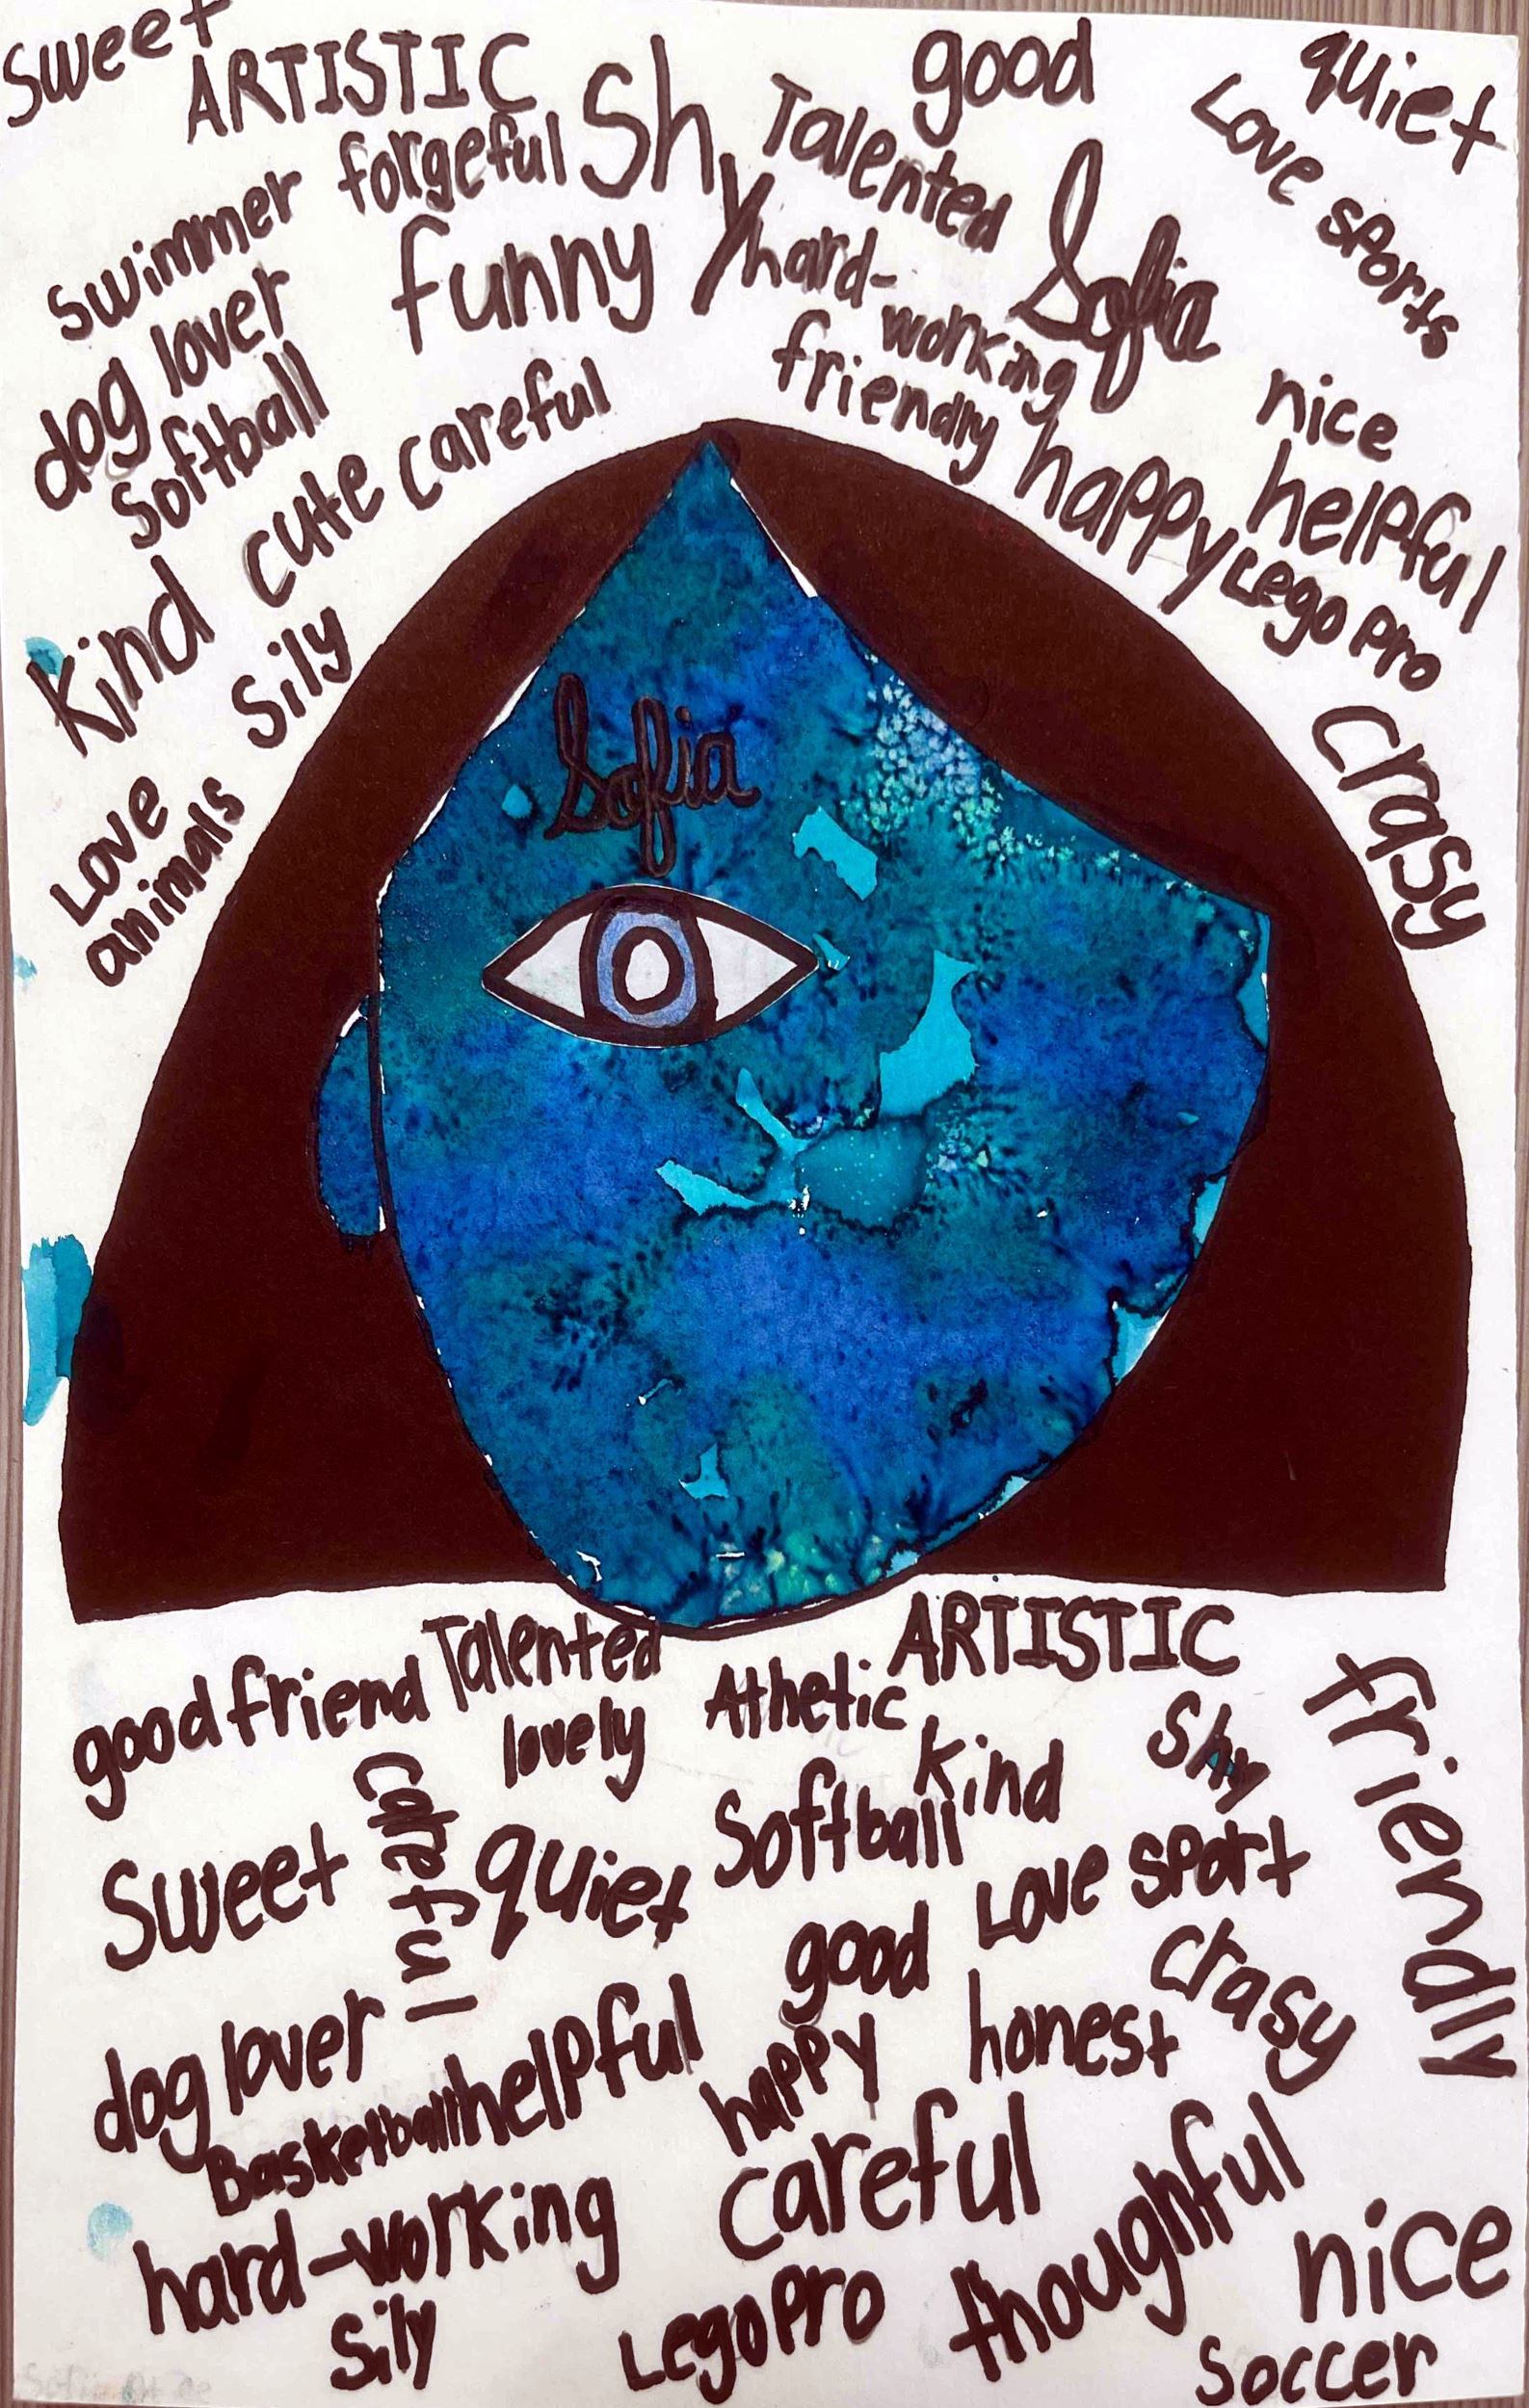 sweet
ARTISTIC
good
quiet
forgeful
Shy
Talented
Love sports
swimmer
funny
hard-
working
Sofia
dog lover
softball
friendly
nice
cute
careful
happy
helpful
Kind
Sily
Lego pro
Love
animals
Crasy
Sofia
good friend
Talented
lovely
Athetic
ARTISTIC
friendly
Shy
Careful
kind
Softball
Sweet
quiet
Love sport
good
crasy
dog lover
helpful
happy
honest
Basketball
hard-working
careful
thoughful
nice
Sily
Lego pro
Soccer